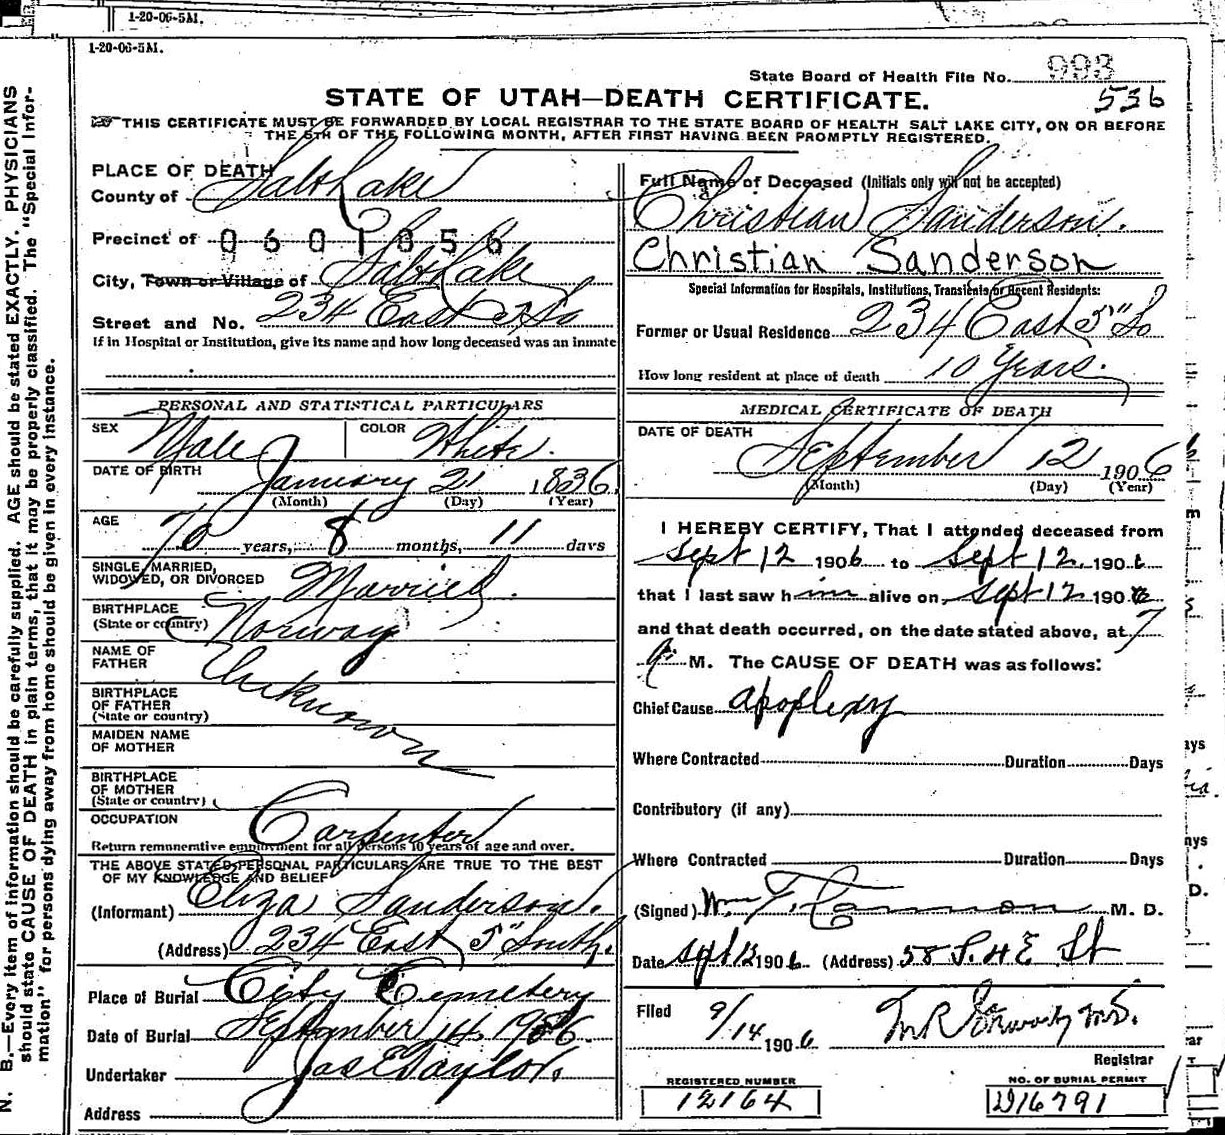 1-20-06-5M.
1-20-06-5M.
State Board of Health File No. 993
536
STATE OF UTAH—DEATH CERTIFICATE.
THIS CERTIFICATE MUST BE FORWARDED BY LOCAL REGISTRAR TO THE STATE BOARD OF HEALTH SALT LAKE CITY, ON OR BEFORE
THE 5TH OF THE FOLLOWING MONTH, AFTER FIRST HAVING BEEN PROMPTLY REGISTERED.
N. B.—Every item of information should be carefully supplied. AGE should be stated EXACTLY. PHYSICIANS
should state CAUSE OF DEATH in plain terms, that it may be properly classified. The "Special Infor-
mation" for persons dying away from home should be given in every instance.
PLACE OF DEATH
County of Salt Lake
Precinct of 0601856
City, Town or Village of Salt Lake
Street and No. 234 East 5 So
If in Hospital or Institution, give its name and how long deceased was an inmate
PERSONAL AND STATISTICAL PARTICULARS
SEX Male COLOR White.
DATE OF BIRTH January 21 1836
(Month) (Day) (Year)
AGE 70 years, 8 months, 11 days
SINGLE, MARRIED,
WIDOWED, OR DIVORCED Married.
BIRTHPLACE
(State or country) Norway
NAME OF
FATHER Unknown
BIRTHPLACE
OF FATHER
(State or country)
MAIDEN NAME
OF MOTHER
BIRTHPLACE
OF MOTHER
(State or country)
OCCUPATION Carpenter
Return remunerative employment for all persons 10 years of age and over.
THE ABOVE STATED PERSONAL PARTICULARS ARE TRUE TO THE BEST
OF MY KNOWLEDGE AND BELIEF
(Informant) Eliza Sanderson.
(Address) 234 East 5" South.
Place of Burial City Cemetery
Date of Burial September 14, 1906.
Undertaker Jas E Taylor.
Address
Full Name of Deceased (Initials only will not be accepted)
Christian Sanderson.
Christian Sanderson
Special Information for Hospitals, Institutions, Transients or Recent Residents:
Former or Usual Residence 234 East 5" So
How long resident at place of death 10 Years.
MEDICAL CERTIFICATE OF DEATH
DATE OF DEATH
September 12 1906
(Month) (Day) (Year)
I HEREBY CERTIFY, That I attended deceased from
Sept 12 1906 to Sept 12, 1906
that I last saw him alive on Sept 12 1906
and that death occurred, on the date stated above, at 7
a. M. The CAUSE OF DEATH was as follows:
Chief Cause apoplexy
Where Contracted Duration Days
Contributory (if any)
Where Contracted Duration Days
(Signed) Wm T. Cannon M. D.
Date Sept 13 1906 (Address) 58 S. 4 E St
Filed 9/14 1906
Registrar
REGISTERED NUMBER
12164
NO. OF BURIAL PERMIT
D16791